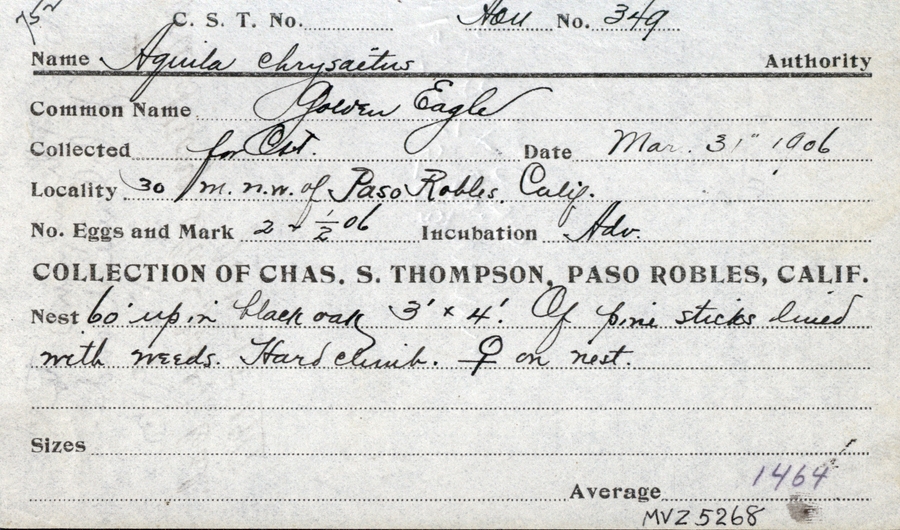 752
C. S. T. No. AOU No. 349
Name Aquila chrysaëtus Authority
Common Name Golden Eagle
Collected for Cst. Date Mar. 31" 1906
Locality 30 m. n.w. of Paso Robles, Calif.
No. Eggs and Mark 2 + 1/2 06 Incubation Adv.
COLLECTION OF CHAS. S. THOMPSON, PASO ROBLES, CALIF.
Nest 60' up in black oak 3' x 4'. Of pine sticks lined
with weeds. Hard climb. ♀ on nest.
Sizes
Average 1464
MVZ 5268